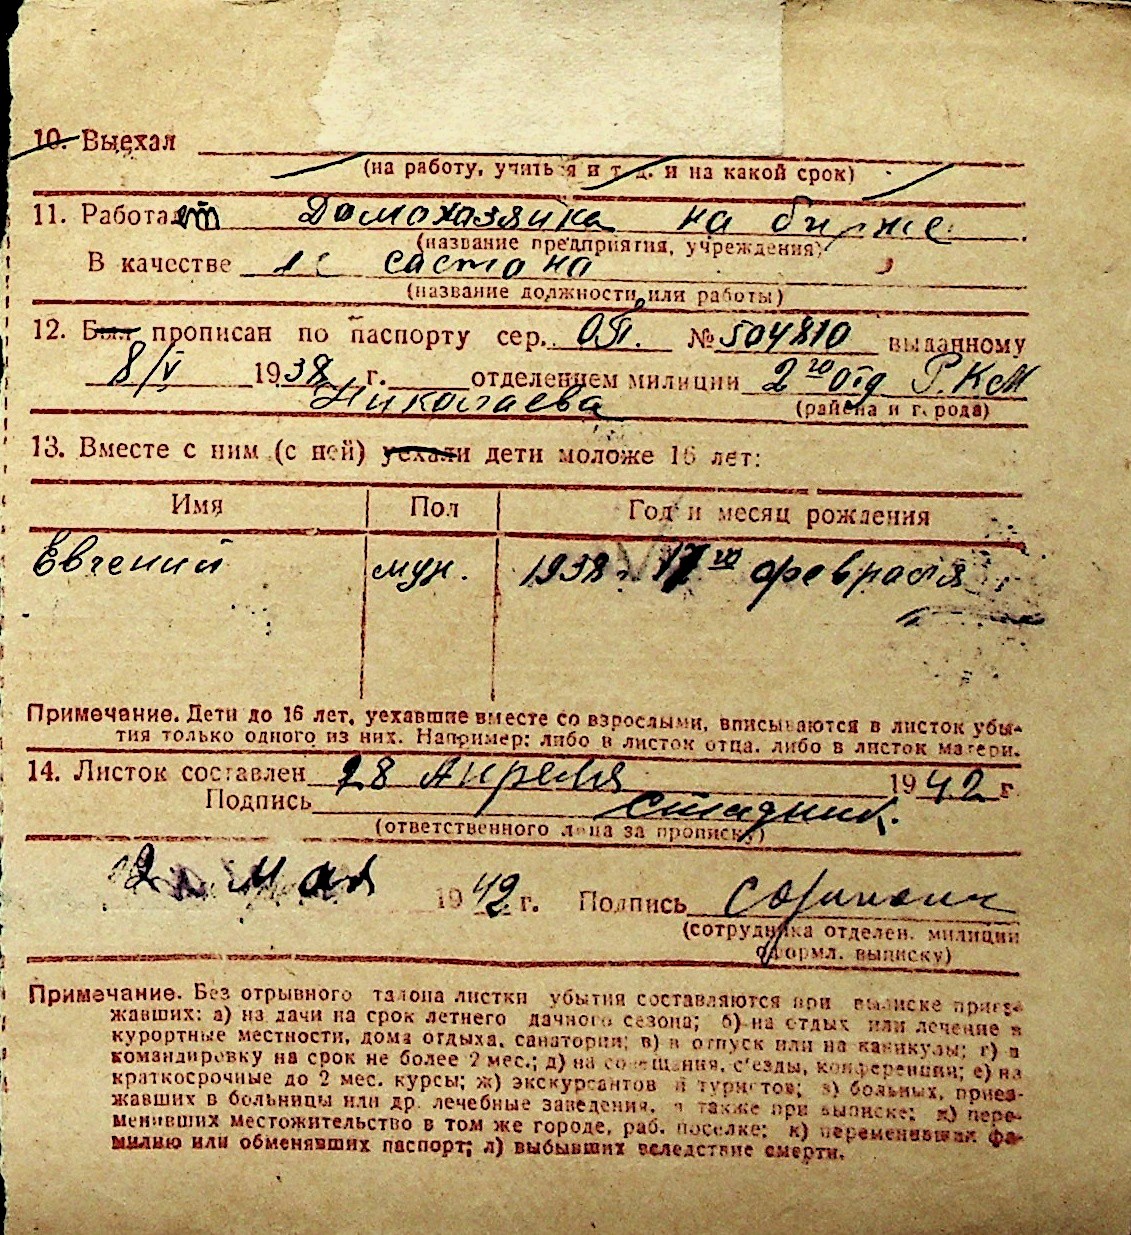 10. Выехал
(на работу, учиться и т. д. и на какой срок)
11. Работает Домохазяйка на бирже
(название предприятия, учреждения)
В качестве состона
(название должности или работы)
12. Был прописан по паспорту сер. ОП. № 504810 выданному
8/V 1938 г. отделением милиции 2го Отд Р.К.М
Николаева (района и города)
13. Вместе с ним (с ней) уехали дети моложе 16 лет:
Имя Пол Год и месяц рождения
Евгений муж. 1938 г. 17го февраля
Примечание. Дети до 16 лет, уехавшие вместе со взрослыми, вписываются в листок убы-
тия только одного из них. Например: либо в листок отца, либо в листок матери.
14. Листок составлен 28 Апреля 1942 г.
Подпись Стадник.
(ответственного лица за прописку)
2 мая 1942 г. Подпись
(сотрудника отделен. милиции
оформл. выписку)
Примечание. Без отрывного талона листки убытия составляются при выписке приез-
жавших: а) на дачи на срок летнего дачного сезона; б) на отдых или лечение в
курортные местности, дома отдыха, санатории; в) в отпуск или на каникулы; г) в
командировку на срок не более 2 мес.; д) на совещания, с'езды, конференции; е) на
краткосрочные до 2 мес. курсы; ж) экскурсантов и туристов; з) больных, приез-
жавших в больницы или др. лечебные заведения, а также при выписке; и) пере-
менивших местожительство в том же городе, раб. поселке; к) переменивших фа-
милию или обменявших паспорт; л) выбывших вследствие смерти.